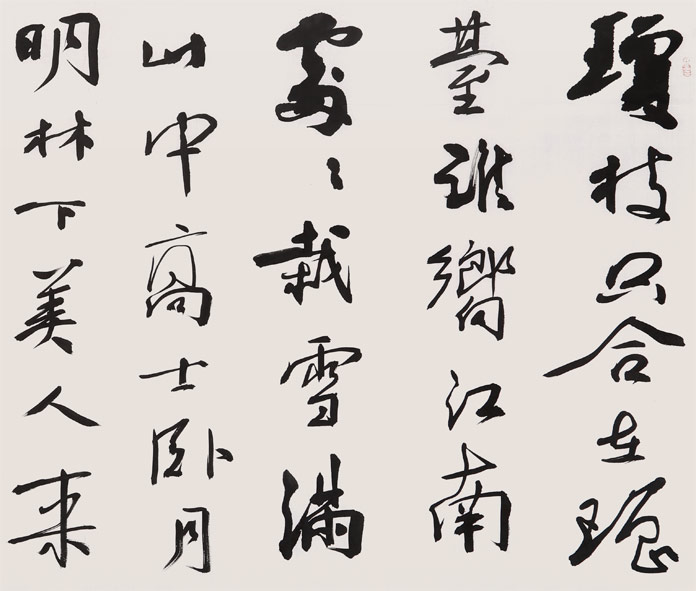 瓊枝只合在瑶
臺誰嚮江南
處〻栽雪滿
山中高士卧月
明林下美人来